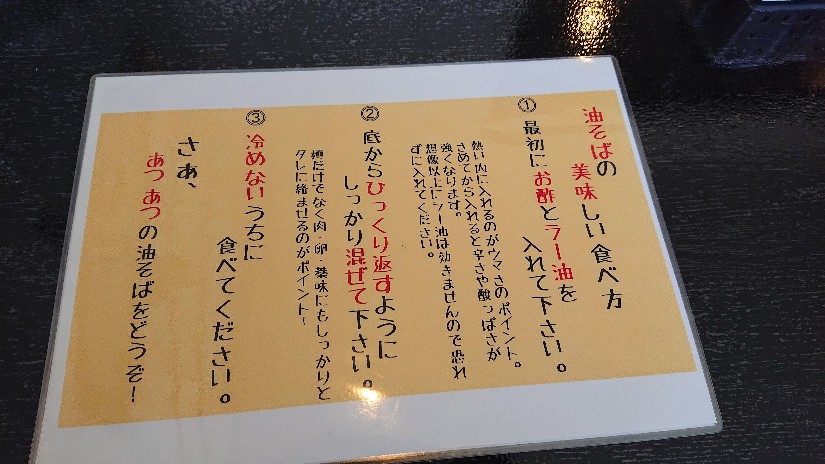 油そばの
美味しい食べ方
① 最初にお酢とラー油を
入れて下さい。
熱い内に入れるのがウマさのポイント。
さめてから入れると辛さや酸っぱさが
強くなります。
想像以上にラー油は効きませんので恐れ
ずに入れてください。
② 底からひっくり返すように
しっかり混ぜて下さい。
麺だけでなく肉・卵・薬味にもしっかりと
タレに絡ませるのがポイント！
③ 冷めないうちに
食べてください。
さあ、
あつあつの油そばをどうぞ！